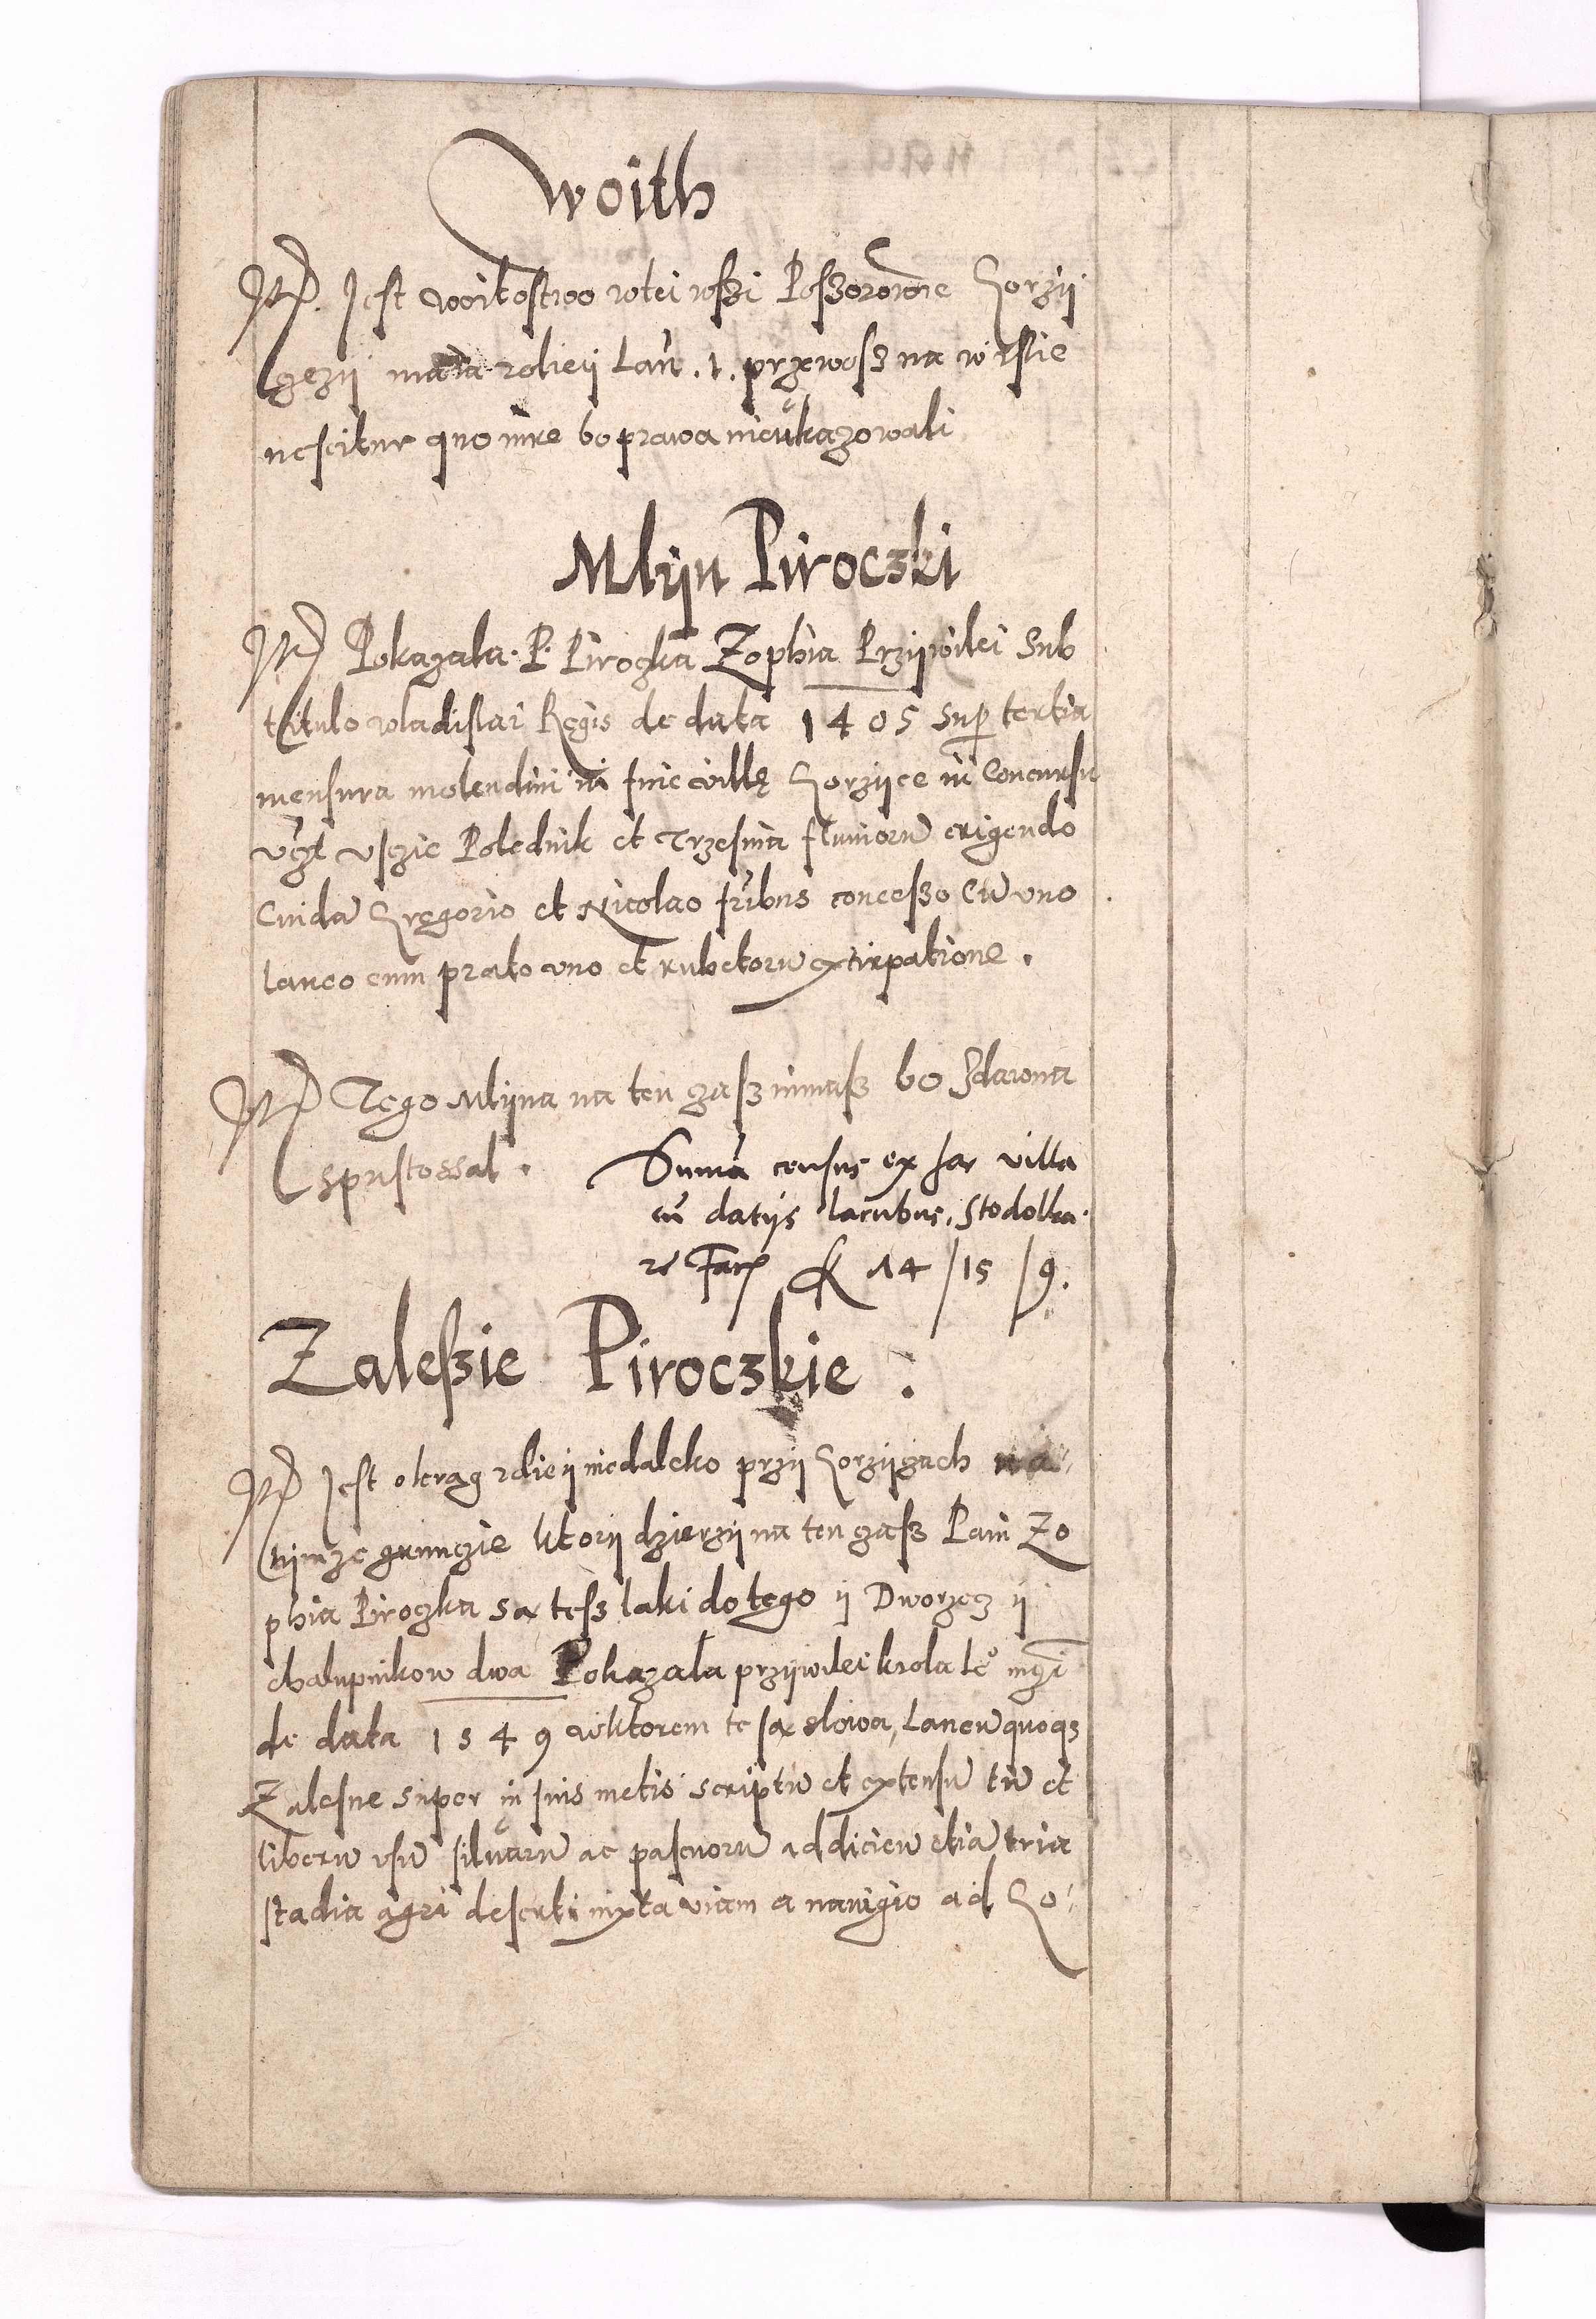 Woith
Itē. Jest woitostwo wtei wszi Poszorowne Gorzij
częzij maia rolieij Lan. 1. przewosz na wislie
nescitur quo iure bo prawa nieukazowali
Mlijn Piroczki
Itē Pokazala. P. Piroczka Zophia Przijwilei Sub
titulo wladislai Regis de data 1405 sup tertia
mensura molendini in fine villę Gorzijce in Concursu
vczt vsczie Polednik et Trzesnia fluuiorū erigendo
Cuidā Gregorio et Nicolao fribus concesso Cū vno
laneo cum prato vno et rubetorū extirpatione.
Itē Tego Mlijna na ten czasz nimasz bo zdawna
spustossal.
Suma census ex hac villa
cū datijs lacubus, Stodolka
14 / 15 / 9.
Zaleszie Piroczkie.
Itē Jest okrag rolieij niedaleko przij Gorzijczach na
nijmze grunczie ktorij dzierzij na ten czasz Pani Zo
phia Piroczka sa tesz laki do tego ij Dworzecz ij
chalupnikow dwa Pokazala przijwilei krola Ie° mczi
de data 1549 wktorem te sa slowa, Laneū quoqz
Zalesne super in suis metis scriptū et extensū tū et
liberū vsū siluarū ac pascuorū addicien etiā tria
stadia agri deserti iuxta viam a nauigio ad Go